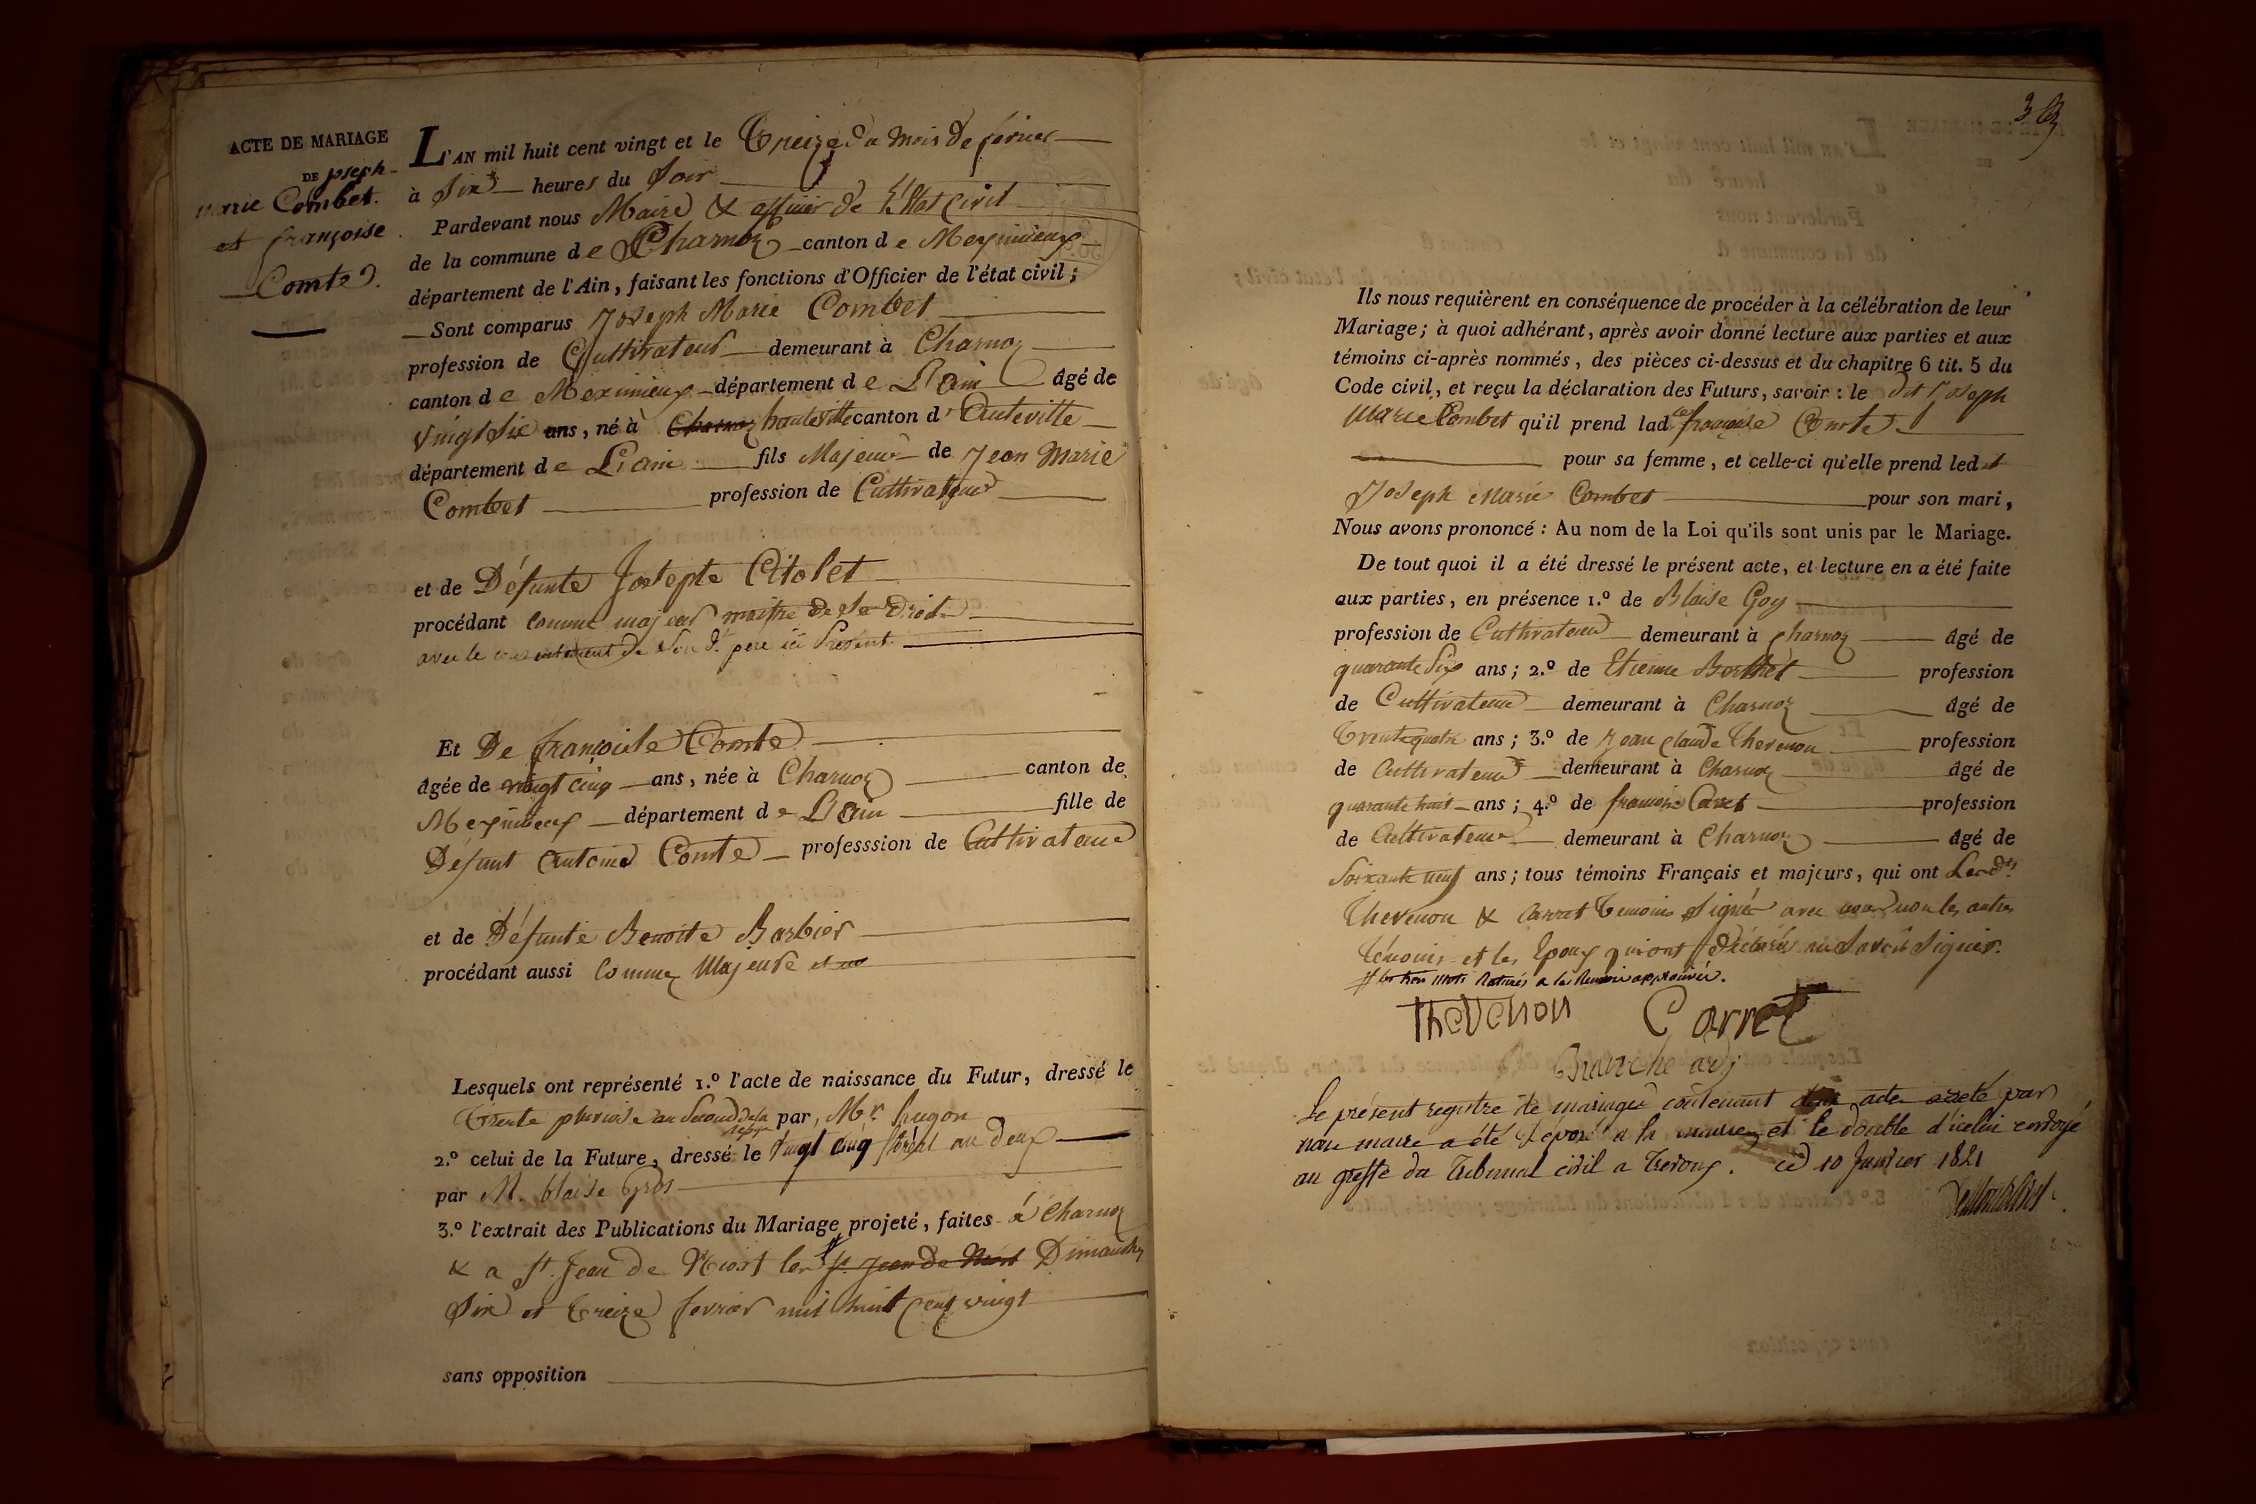 ACTE DE MARIAGE
DE joseph
marie Combet.
et françoise
Comte.
L'AN mil huit cent vingt et le Treize du mois de février
à Six heures du Soir
Pardevant nous Maire & officier de L'Etat Civil
de la commune de Charnoz canton de Meximieux
département de l'Ain, faisant les fonctions d'Officier de l'état civil;
Sont comparus Joseph Marie Combet
profession de Cultivateur demeurant à Charnoz
canton de Meximieux département de L'ain âgé de
Vingt Six ans, né à Charnoz hauteville canton d'hauteville
département de L'ain fils Majeur de Jean Marie
Combet profession de Cultivateur
et de Défunte Josepte Citolet
procédant comme majeur maitre de Ses Droits
avec le consentement de Son d. pere ici Présent
Et De françoise Comte
âgée de vingt cinq ans, née à Charnoz canton de
Meximieux département de L'ain fille de
Défunt Antoine Comte professsion de Cultivateur
et de Défunte Benoite Barbier
procédant aussi Comme Majeure
Lesquels ont représenté 1.º l'acte de naissance du Futur, dressé le
Trente pluviose an Second de la repque par, Mr. hugon
2.º celui de la Future, dressé le Vingt cinq floréal an deux
par M. blaise gros
3.º l'extrait des Publications du Mariage projeté, faites à Charnoz
& a St. Jean de Niost les St. Jean de Niost Dimanches
Six et Treize fevrier mil huit cent vingt
sans opposition
3
Ils nous requièrent en conséquence de procéder à la célébration de leur
Mariage; à quoi adhérant, après avoir donné lecture aux parties et aux
témoins ci-après nommés, des pièces ci-dessus et du chapitre 6 tit. 5 du
Code civil, et reçu la déclaration des Futurs, savoir: le dit Joseph
Marie Combet qu'il prend ladte françoise Comte
pour sa femme, et celle-ci qu'elle prend ledit
Joseph Marie Combet pour son mari,
Nous avons prononcé: Au nom de la Loi qu'ils sont unis par le Mariage.
De tout quoi il a été dressé le présent acte, et lecture en a été faite
aux parties, en présence 1.º de Blaise Goy
profession de Cultivateur demeurant à charnoz âgé de
quarante Six ans; 2.º de Etienne Berthet profession
de Cultivateur demeurant à Charnoz âgé de
Trente quatre ans; 3.º de Jean claude Thevenon profession
de Cultivateur demeurant à Charnoz âgé de
quarante huit ans; 4.º de francois Carret profession
de Cultivateur demeurant à Charnoz âgé de
Soixante neuf ans; tous témoins Français et majeurs, qui ont Lesdts
Thevenon & Carret Temoins Signé avec nous non les autres
Témoins et les Epoux qui ont Déclarés ne Savoir Signer.
# les trois mots Raturés a la Remise approuvés.
Thevenon Carret
Branche adj
Le présent registre de mariages contenant acte arreté par
nous maire a été déposé a la mairie, et le double d'icelui envoyé
au greffe du Tribunal civil a Trevoux. ce 10 Janvier 1821